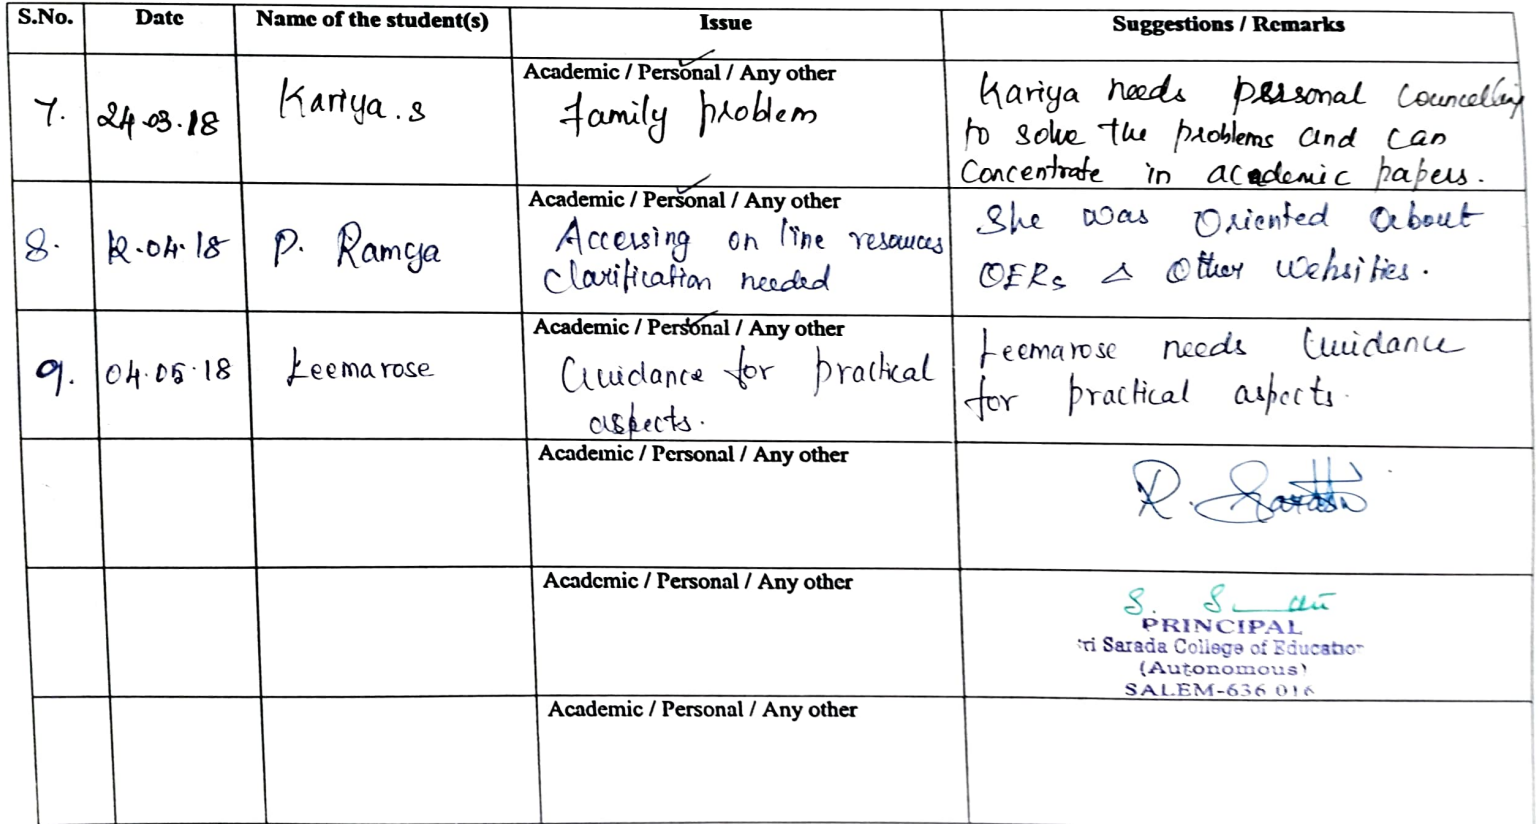 S.No. Date Name of the student(s) Issue Suggestions / Remarks
Academic / Personal / Any other
7. 24.03.18 Kariya.s
Family problem
Kariya needs personal councelling
to solve the problems and can
concentrate in academic papers.
Academic / Personal / Any other
8. 12.04.18 P. Ramya
Accessing on line resources
Clarification needed
She was Oriented about
OERs & Other Websities.
Academic / Personal / Any other
9. 04.05.18 Leemarose
Guidance for practical
aspects.
Leemarose needs Guidance
for practical aspects.
Academic / Personal / Any other
R.
Academic / Personal / Any other
S.
PRINCIPAL
Sri Sarada College of Education
(Autonomous)
SALEM-636 016
Academic / Personal / Any other